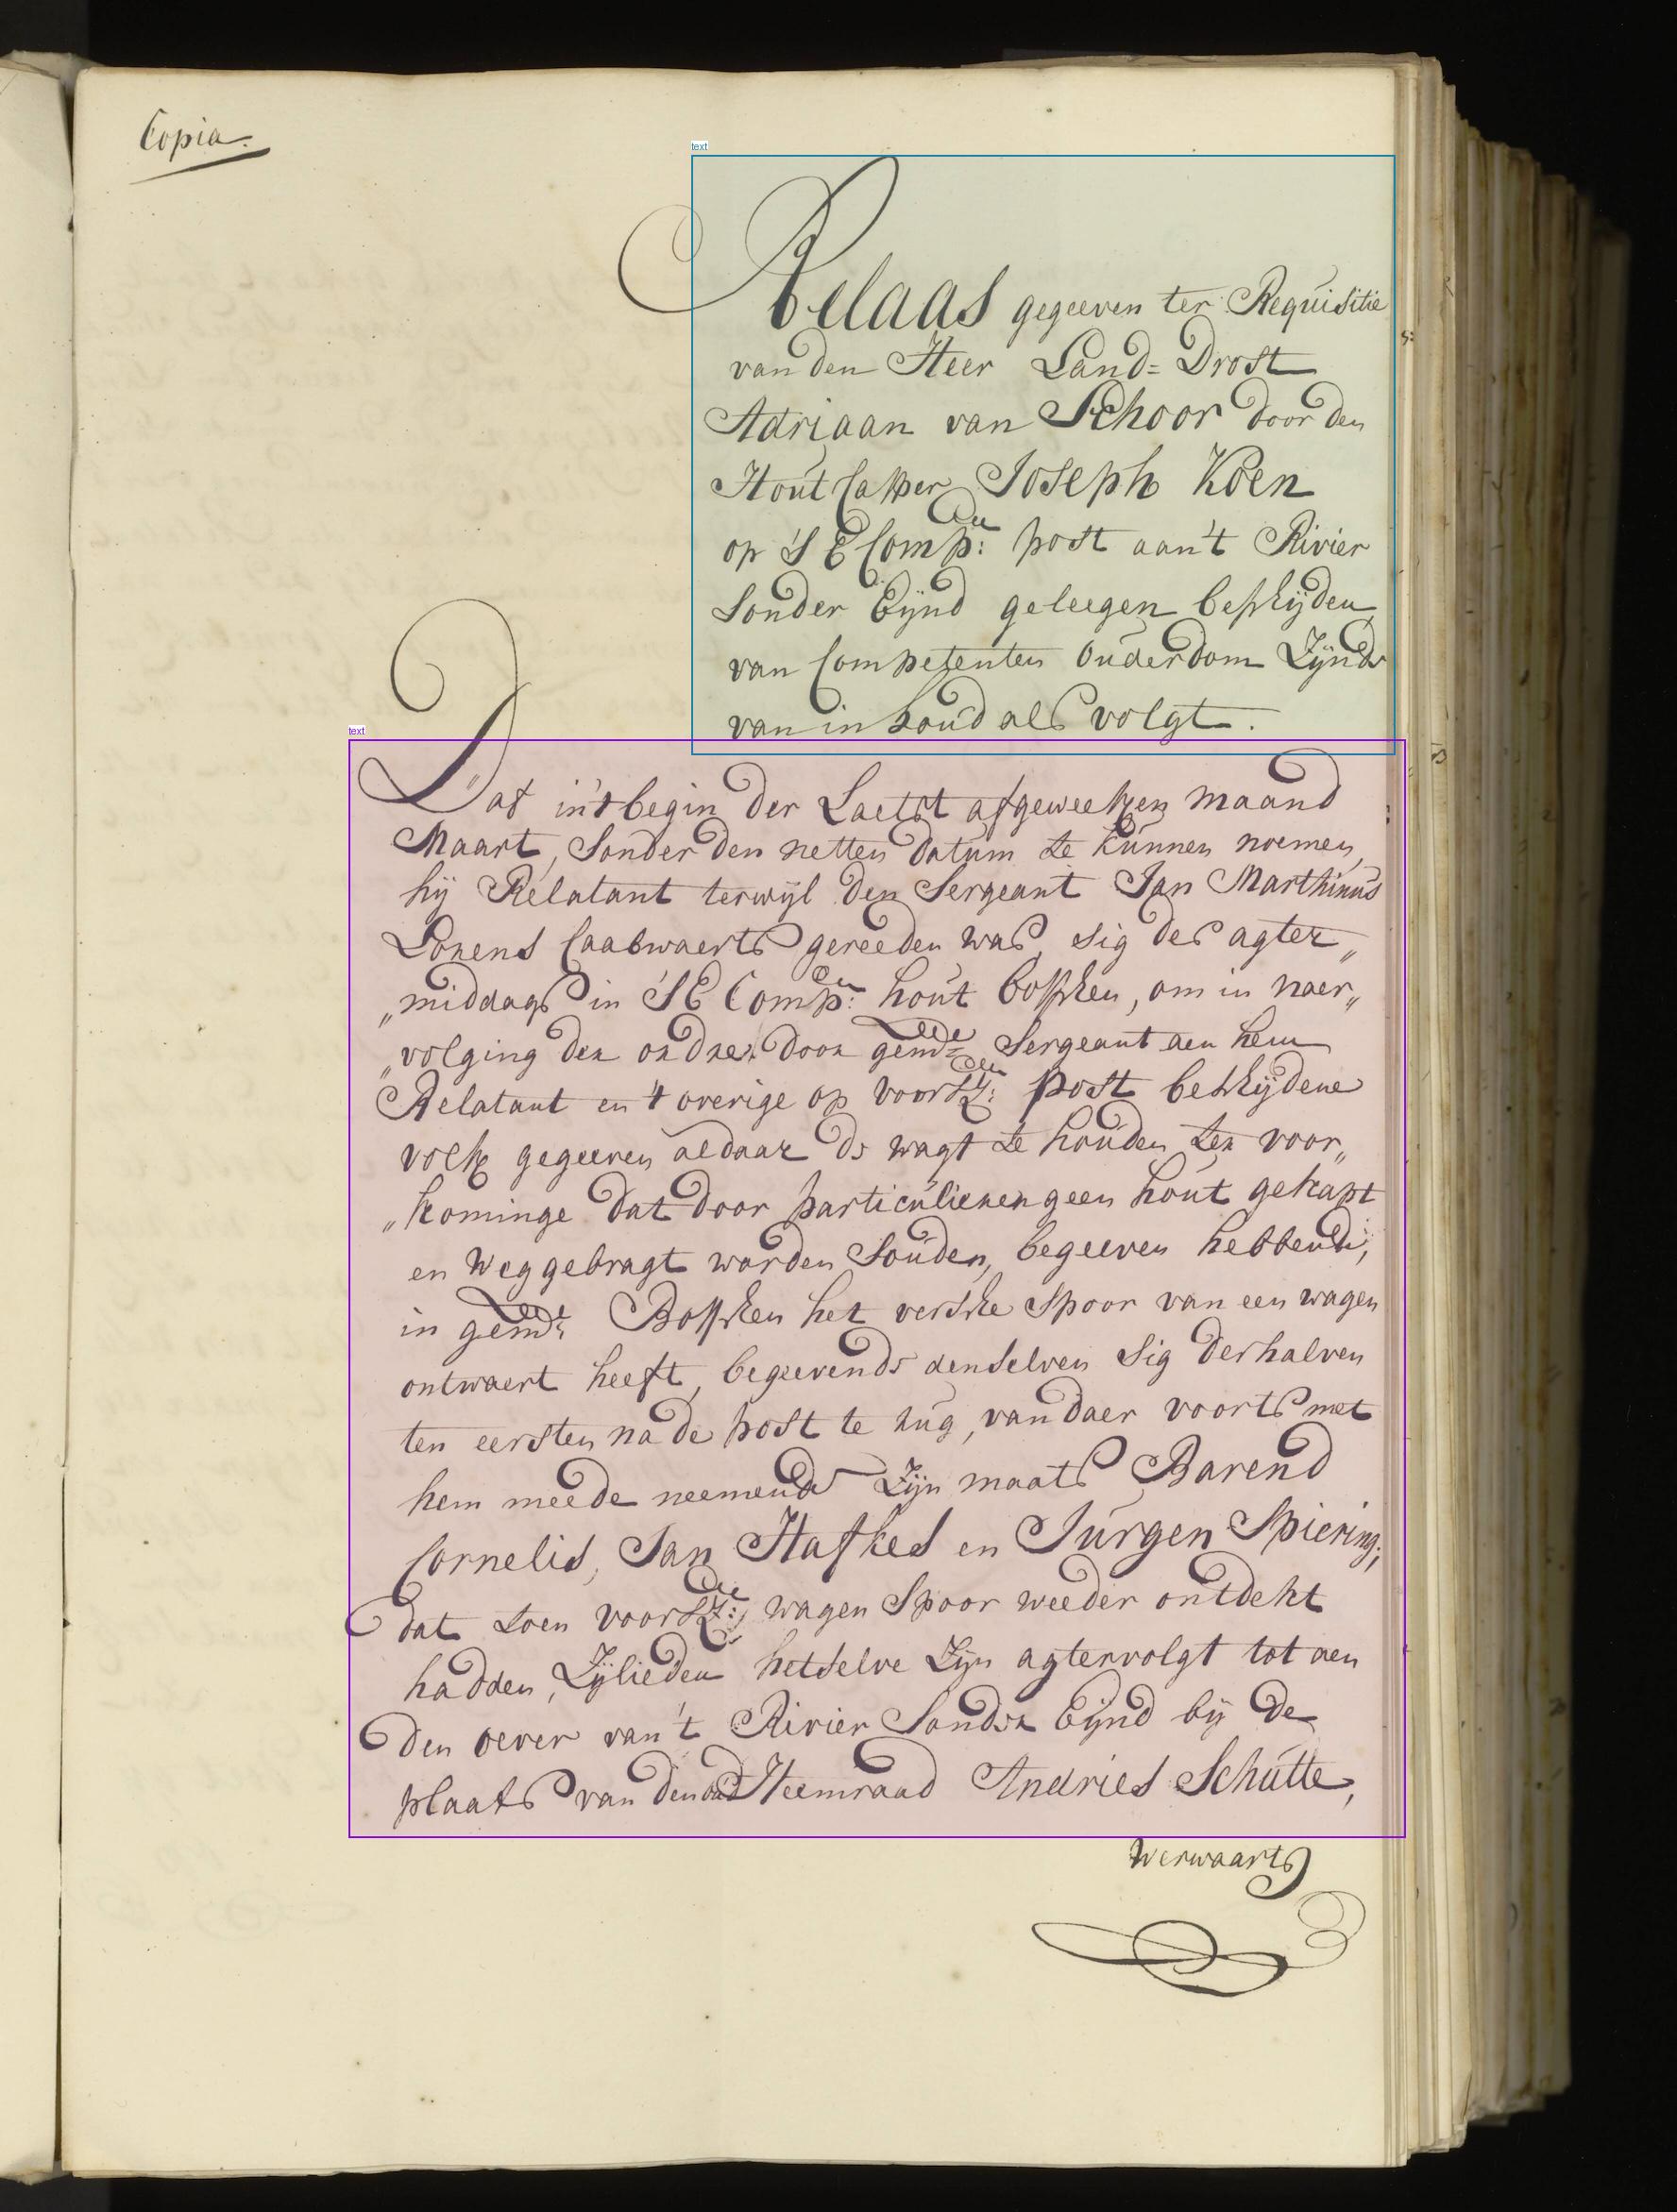 Copia.
Relaas gegeeven ter Requisitie
van den Heer Land=Drost
Adriaan van Schoor door den
Houtkapper Joseph Koen
op 'S E Comp:en post aan't Rivier
Sonder Eijnd geleegen bescheijden
van Competenten ouderdom Zijnde
van inhoud als volgt.
Dat in't begin der Laetst afgeweeken maand
Maart, Sonder den netten datum te kunnen noemen,
hij Relatant terwijl den Sergeant Jan Marthinus
Lorens Caabwaerts gereeden was, sig des agter„
„middags in 'S E Comp:en hout bosschen, om in naer„
„volging der ordre, door gemde Sergeant aen hem
Relatant en 't overige op voorsz:en post bescheijdene
volk gegeeven aldaar de wagt te houden ter voor„
„kominge dat door particulieren geen hout gekapt
en weggebragt worden Souden, begeeven hebbende,
in gemde Bosschen het versche Spoor van een wagen
ontwaert heeft, begeevende denselven Sig derhalven
ten eersten na de post te rug, van daer voorts met
hem meede neemende Zijn maats Barend
Cornelis, Jan Hafkes en Jurgen Spiering;
dat toen voorsz:en wagen Spoor weeder ontdekt
hadden, Zijlieden hetselve Zijn agtervolgt tot aen
den oever van't Rivier Sonder Eijnd bij de
plaats van den oud Heemraad Andries Schutte,
werwaarts